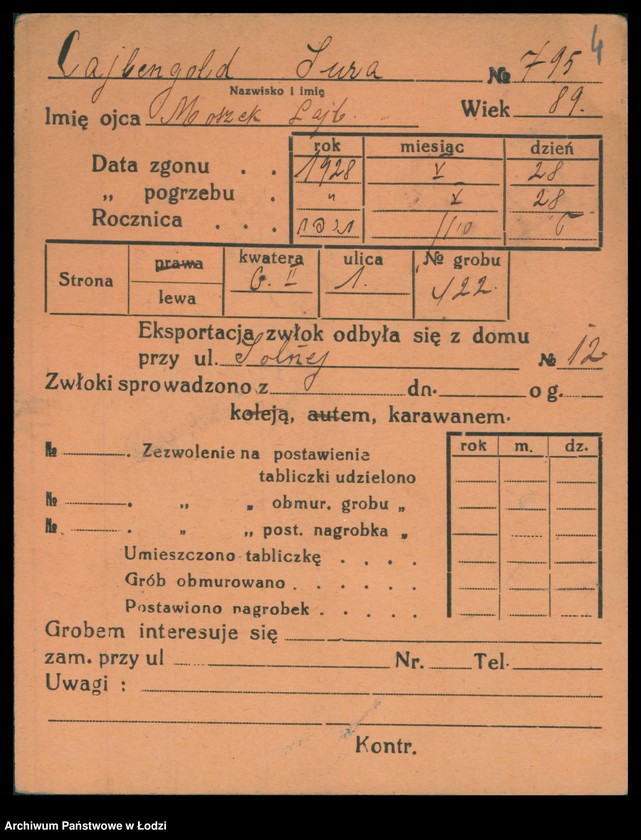 Cajbengold Sura № 795 4
Nazwisko i imię
Imię ojca Moszek Lajb. Wiek 89.
rok miesiąc dzień
Data zgonu . . 1928 V 28
„ pogrzebu . " V 28
Rocznica . . .
Strona prawa lewa kwatera G. II ulica 1. № grobu 422.
Eksportacja zwłok odbyła się z domu
przy ul. Solnej № 12
Zwłoki sprowadzono z dn. o g.
koleją, autem, karawanem.
№ . Zezwolenie na postawienia rok m. dz.
tabliczki udzielono
№ . „ „ obmur. grobu „
№ . „ „ post. nagrobka „
Umieszczono tabliczkę . . . .
Grób obmurowano . . . . .
Postawiono nagrobek . . . . .
Grobem interesuje się
zam. przy ul Nr. Tel.
Uwagi :
Kontr.
Archiwum Państwowe w Łodzi